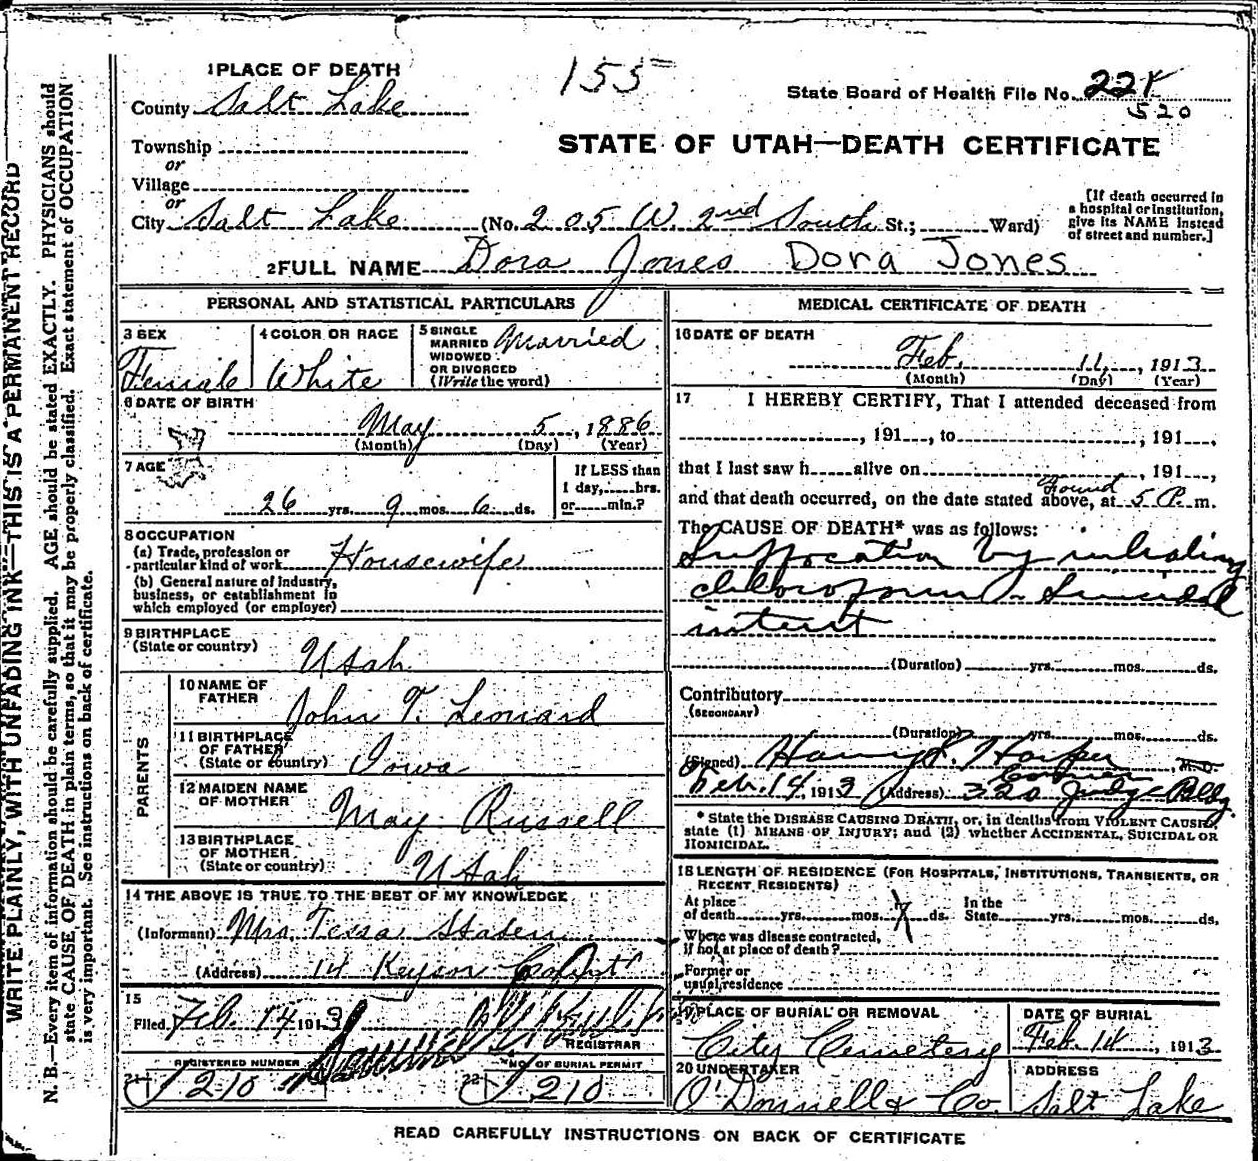 155
1 PLACE OF DEATH
County Salt Lake
State Board of Health File No. 22
520
Township
or
Village
or
STATE OF UTAH—DEATH CERTIFICATE
City Salt Lake (No. 205 W. 2nd South St.; Ward)
[If death occurred in a hospital or institution, give its NAME instead of street and number.]
2 FULL NAME Dora Jones Dora Jones
PERSONAL AND STATISTICAL PARTICULARS
3 SEX
Female
4 COLOR OR RACE
White
5 SINGLE
MARRIED
WIDOWED
OR DIVORCED
(Write the word)
Married
6 DATE OF BIRTH
May 5, 1886
(Month) (Day) (Year)
7 AGE
26 yrs. 9 mos. 6 ds.
If LESS than
1 day, hrs.
or min.?
8 OCCUPATION
(a) Trade, profession or
particular kind of work Housewife
(b) General nature of industry,
business, or establishment in
which employed (or employer)
9 BIRTHPLACE
(State or country)
Utah
PARENTS
10 NAME OF
FATHER
John T. Leonard
11 BIRTHPLACE
OF FATHER
(State or country) Iowa
12 MAIDEN NAME
OF MOTHER
May Russell
13 BIRTHPLACE
OF MOTHER
(State or country) Utah
14 THE ABOVE IS TRUE TO THE BEST OF MY KNOWLEDGE
(Informant) Mrs. Tessa Staben
(Address) 14 Keyser Court
15
Filed Feb. 14 1913
REGISTRAR
REGISTERED NUMBER
21 1210
NO. OF BURIAL PERMIT
22 1210
MEDICAL CERTIFICATE OF DEATH
16 DATE OF DEATH
Feb. 11, 1913
(Month) (Day) (Year)
17 I HEREBY CERTIFY, That I attended deceased from
, 191 , to , 191 ,
that I last saw h alive on , 191 ,
Found
and that death occurred, on the date stated above, at 5 P. m.
The CAUSE OF DEATH* was as follows:
Suffocation by inhaling
chloroform - Suicidal
intent
(Duration) yrs. mos. ds.
Contributory
(SECONDARY)
(Duration) yrs. mos. ds.
(Signed) Harry S. Harper, M.D.
Coroner
Feb. 14, 1913 (Address) 320 Judge Bldg.
* State the DISEASE CAUSING DEATH, or, in deaths from VIOLENT CAUSES,
state (1) MEANS OF INJURY; and (2) whether ACCIDENTAL, SUICIDAL OR
HOMICIDAL.
18 LENGTH OF RESIDENCE (FOR HOSPITALS, INSTITUTIONS, TRANSIENTS, OR
RECENT RESIDENTS)
At place
of death yrs. mos. ds.
In the
State yrs. mos. ds.
Where was disease contracted,
if not at place of death?
Former or
usual residence
19 PLACE OF BURIAL OR REMOVAL
City Cemetery
DATE OF BURIAL
Feb. 14, 1913
20 UNDERTAKER
O'Donnell & Co.
ADDRESS
Salt Lake
READ CAREFULLY INSTRUCTIONS ON BACK OF CERTIFICATE
WRITE PLAINLY, WITH UNFADING INK—THIS IS A PERMANENT RECORD
N. B.—Every item of information should be carefully supplied. AGE should be stated EXACTLY. PHYSICIANS should
state CAUSE OF DEATH in plain terms, so that it may be properly classified. Exact statement of OCCUPATION
is very important. See instructions on back of certificate.